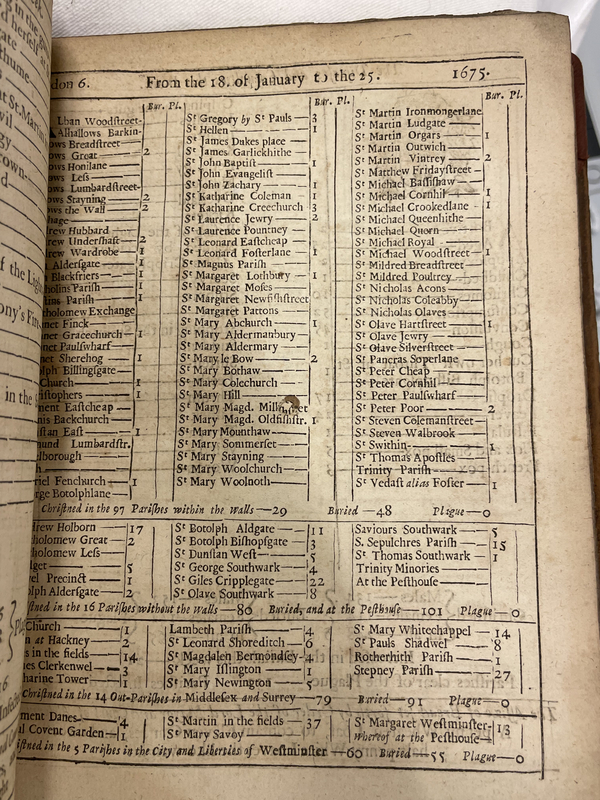 don 6. From the 18. of January to the 25. 1675.
Bur. Pl.
lban Woodſtreet-
Alhallows Barkin-
ows Breadſtreet
ows Great 2
ows Honilane
ows Leſs
ows Lumbardſtreet-
ows Stayning 2
ows the Wall 2
hage
rew Hubbard
rew Underſhaft 2
rew Wardrobe 1
Alderſgate 1
Blackfriers 1
holins Pariſh 1
lins Pariſh 1
tholomew Exchange
net Finck
net Gracechurch 1
net Paulſwharf
net Sherehog 1
lph Billingſgate
Church 1
iſtophers 1
ment Eaſtcheap
nis Backchurch
ſtan Eaſt 1
mund Lumbardſtr.
lborough
h
riel Fenchurch 1
rge Botolphlane
Bur. Pl.
Sᵗ Gregory by Sᵗ Pauls 3
Sᵗ Hellen 1
Sᵗ James Dukes place
Sᵗ James Garlickhithe
Sᵗ John Baptiſt 1
Sᵗ John Evangeliſt
Sᵗ John Zachary 1
Sᵗ Katharine Coleman 1
Sᵗ Katharine Creechurch 3
Sᵗ Laurence Jewry 2
Sᵗ Laurence Pountney
Sᵗ Leonard Eaſtcheap
Sᵗ Leonard Foſterlane 1
Sᵗ Magnus Pariſh
Sᵗ Margaret Lothbury 1
Sᵗ Margaret Moſes
Sᵗ Margaret Newfiſhſtreet
Sᵗ Margaret Pattons
Sᵗ Mary Abchurch 1
Sᵗ Mary Aldermanbury
Sᵗ Mary Aldermary
Sᵗ Mary le Bow 2
Sᵗ Mary Bothaw
Sᵗ Mary Colechurch
Sᵗ Mary Hill
Sᵗ Mary Magd. Milkſtreet
Sᵗ Mary Magd. Oldfiſhſtr. 1
Sᵗ Mary Mounthaw
Sᵗ Mary Sommerſet
Sᵗ Mary Stayning
Sᵗ Mary Woolchurch
Sᵗ Mary Woolnoth
Bur. Pl.
Sᵗ Martin Ironmongerlane
Sᵗ Martin Ludgate
Sᵗ Martin Orgars 1
Sᵗ Martin Outwich
Sᵗ Martin Vintrey 2
Sᵗ Matthew Fridayſtreet
Sᵗ Michael Baſſiſhaw
Sᵗ Michael Cornhil 1
Sᵗ Michael Crookedlane 1
Sᵗ Michael Queenhithe
Sᵗ Michael Quorn
Sᵗ Michael Royal
Sᵗ Michael Woodſtreet 1
Sᵗ Mildred Breadſtreet
Sᵗ Mildred Poultrey
Sᵗ Nicholas Acons
Sᵗ Nicholas Coleabby
Sᵗ Nicholas Olaves
Sᵗ Olave Hartſtreet 1
Sᵗ Olave Jewry
Sᵗ Olave Silverſtreet
Sᵗ Pancras Soperlane
Sᵗ Peter Cheap
Sᵗ Peter Cornhil
Sᵗ Peter Paulſwharf
Sᵗ Peter Poor 2
Sᵗ Steven Colemanſtreet
Sᵗ Steven Walbrook
Sᵗ Swithin 1
Sᵗ Thomas Apoſtles
Trinity Pariſh
Sᵗ Vedaſt alias Foſter 1
Chriſtned in the 97 Pariſhes within the Walls 29 Buried 48 Plague 0
drew Holborn 17
tholomew Great 2
tholomew Leſs
dget 5
vel Precinct 1
olph Alderſgate 2
Sᵗ Botolph Aldgate 11
Sᵗ Botolph Biſhopſgate 3
Sᵗ Dunſtan Weſt 5
Sᵗ George Southwark 4
Sᵗ Giles Cripplegate 22
Sᵗ Olave Southwark 8
Saviours Southwark 5
S. Sepulchres Pariſh 15
Sᵗ Thomas Southwark 1
Trinity Minories
At the Peſthouſe
ſtned in the 16 Pariſhes without the Walls 80 Buried, and at the Peſthouſe 101 Plague 0
Church 1
n at Hackney 2
s in the fields 14
es Clerkenwel 3
harine Tower 3
Lambeth Pariſh 4
Sᵗ Leonard Shoreditch 6
Sᵗ Magdalen Bermondſey 4
Sᵗ Mary Iſlington 1
Sᵗ Mary Newington 5
Sᵗ Mary Whitechappel 14
Sᵗ Pauls Shadwel 8
Rotherhith Pariſh 1
Stepney Pariſh 27
Chriſtned in the 14 Out-Pariſhes in Middleſex and Surrey 79 Buried 91 Plague 0
ment Danes 4
l Covent Garden 1
Sᵗ Martin in the fields 37
Sᵗ Mary Savoy
Sᵗ Margaret Weſtminſter 13
Whereof at the Peſthouſe
iſtned in the 5 Pariſhes in the City and Liberties of Weſtminſter 60 Buried 55 Plague 0